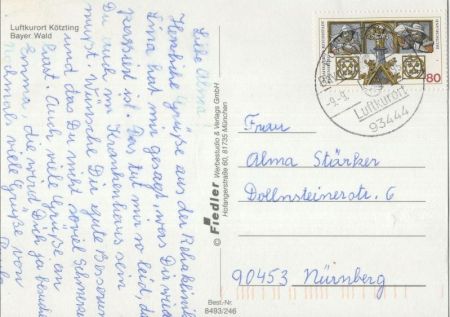 Luftkurort Kötzting
Bayer. Wald
Liebe Alma!
Herzliche Grüße aus der Rehaklinik
Lina hat mir gesagt was Dir wieder
passiert ist. Das tut mir so leid, daß
Du auch im Krankenhaus sein
mußt. Wünsche Dir gute Besserung
und das Du nicht soviel Schmerzen
hast. Auch viele Grüße an
Emma, die wird Dich ja
Nochmals viele Grüße von
© Fiedler Werbestudio & Verlags GmbH
Hofangerstraße 60, 81735 München
Best.-Nr.
8493/246
80
-9.-9.
Luftkurort
93444
Frau
Alma Stärker
Dollnsteinerstr. 6
90453 Nürnberg